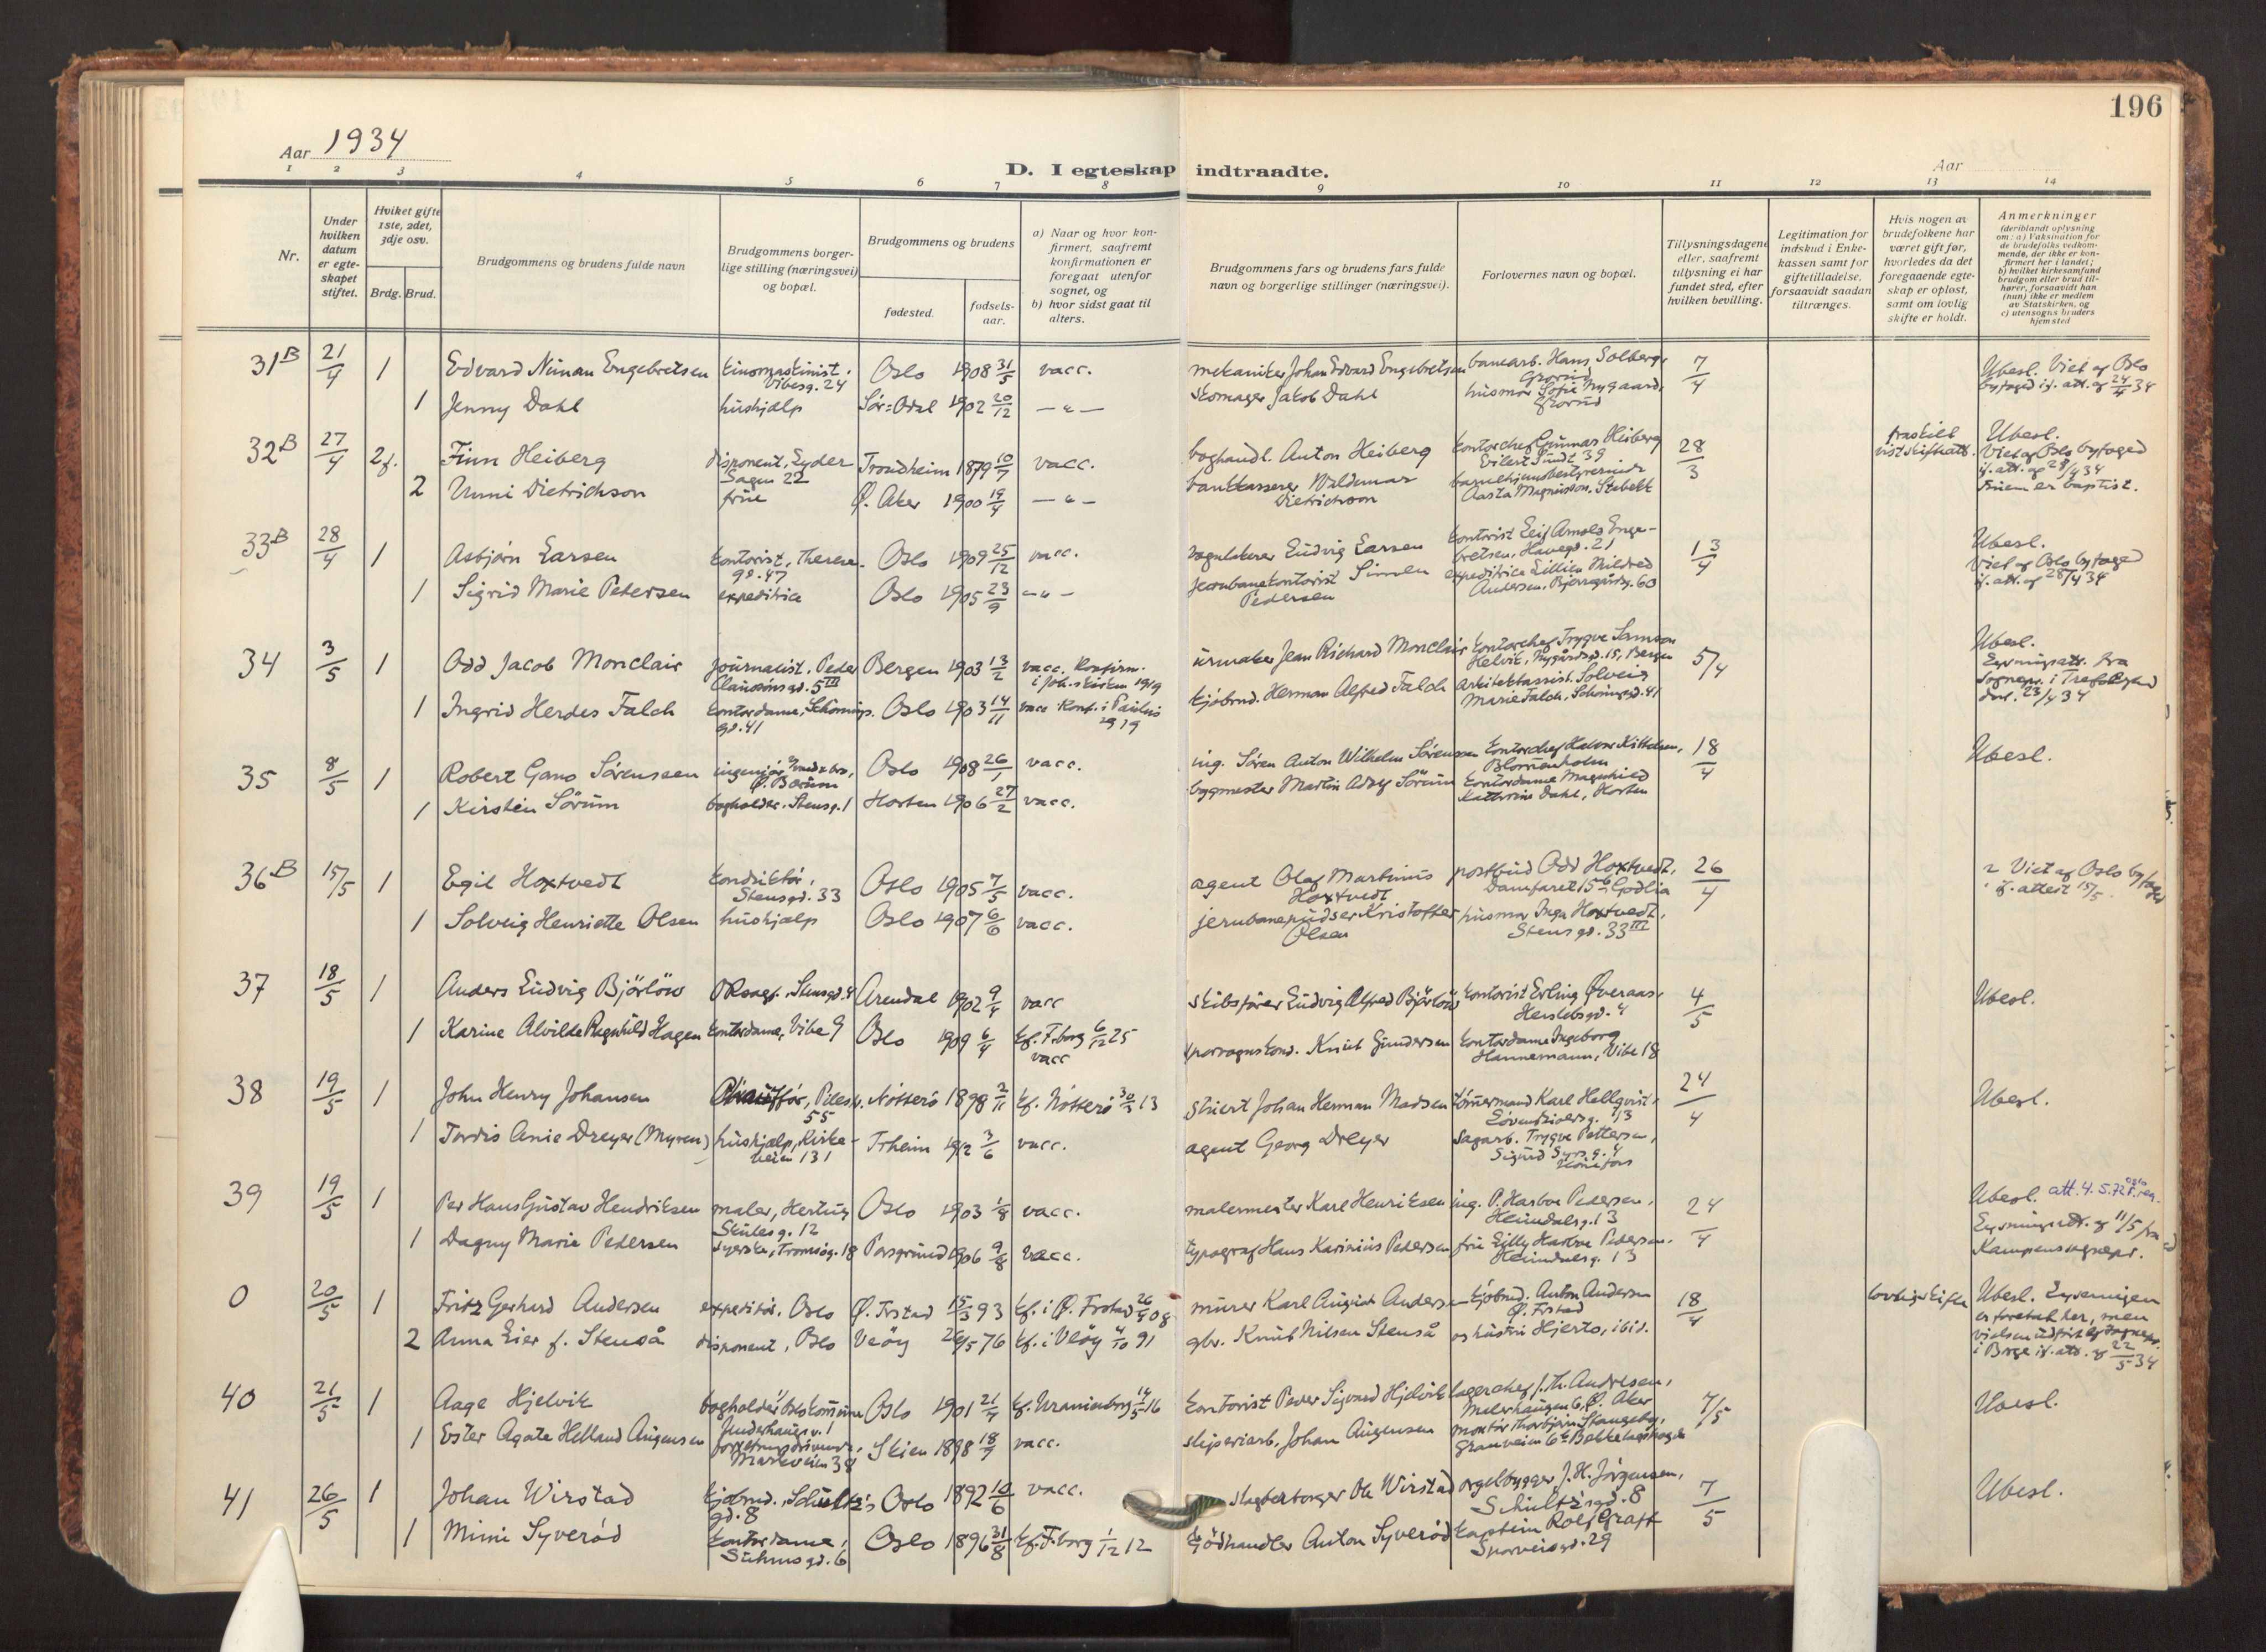 196
Aar 1934
D. I egteskap indtraadte.
Aar
1 2 3 4 5 6 7 8 9 10 11 12 13 14
Nr.
Under hvilken datum er egteskapet stiftet.
Hviket gifte 1ste, 2det, 3dje osv.
Brdg. Brud.
Brudgommens og brudens fulde navn
Brudgommens borgerlige stilling (næringsvei) og bopæl.
Brudgommens og brudens
fødested.
fødselsaar.
a) Naar og hvor konfirmert, saafremt konfirmationen er foregaat utenfor sognet, og
b) hvor sidst gaat til alters.
Brudgommens fars og brudens fars fulde navn og borgerlige stillinger (næringsvei).
Forlovernes navn og bopæl.
Tillysningsdagene eller, saafremt tillysning ei har fundet sted, efter hvilken bevilling.
Legitimation for indskud i Enkekassen samt for giftetilladelse, forsaavidt saadan tiltrænges.
Hvis nogen av brudefolkene har været gift før, hvorledes da det foregaaende egteskap er opløst, samt om lovlig skifte er holdt.
Anmerkninger (deriblandt oplysning om: a) Vaksination for de brudefolks vedkommende, der ikke er konfirmert her i landet; b) hvilket kirkesamfund brudgom eller brud tilhører, forsaavidt han (hun) ikke er medlem av Statskirken, og c) utensogns bruders hjemsted
31B 21/4 1 Edvard Neuman Engebretsen kinomaskinist, Vibesg. 24 Oslo 1908 31/5 vacc. mekaniker Johan Edvard Engebretsen banearb. Hans Solberg, Grorud 7/4 Ubesl. Viet af Oslo byfoged if. att. af 24/4 34
1 Jenny Dahl hushjælp Sør-Odal 1902 20/12 —"— skomager Jakob Dahl husmor Sofie Nygaard, Grorud
32B 27/4 2f. Finn Heiberg disponent, Eyder Sagen 22 Trondheim 1879 10/7 vacc. boghandl. Anton Heiberg kontorchef Gunnar Heiberg Eilert Sundt 39 28/3 fraskilt vist skifteatt. Ubesl. Viet af Oslo byfoged if. att. af 28/4 34 Bruden er baptist.
2 Unni Dietrichson frue Ø. Aker 1900 19/4 —"— bankkasserer Waldemar Dietrichson barnehjemsbestyrerinde Aasta Magnusson, Stabekk
33B 28/4 1 Asbjørn Larsen kontorist, Therese gd. 47 Oslo 1909 25/12 vacc. vognlakerer Ludvig Larsen kontorist Leif Arnold Engebretsen, Havegd. 21 13/4 Ubesl. Viet af Oslo byfoged if. att. af 28/4 34
1 Sigrid Marie Petersen expeditrice Oslo 1905 23/9 —"— jernbanekontorist Simen Pedersen expeditrice Lillien Mildred Andersen, Bjerregårdsg. 60
34 3/5 1 Odd Jacob Monclair journalist, Peder Claussøns gd. 5 III Bergen 1903 13/2 vacc. Konfirm. i Joh. skirken 1919 urmaker Jean Richard Monclair kontorchef Trygve Samson Helvik, Nygårdsgd. 15, Bergen 5/4 Ubesl. Lysningsatt. fra sognepr. i Trefoldighed dat. 23/4 34
1 Ingrid Herdes Falch kontordame, Schønings gd. 41 Oslo 1903 14/11 vacc Konf. i Paulus 1919 kjøbmd. Herman Alfred Falch Arkitektassist. Solveig Marie Falch, Schøningsgd. 41
35 8/5 1 Robert Gano Sørenssen ingeniør, Bærum Oslo 1908 26/1 vacc. ing. Søren Anton Wilhelm Sørenssen kontorchef Halvor Kittelsen, Blommenholm 18/4 Ubesl.
1 Kirsten Sørum bogholder, Stensg. 1 Horten 1906 27/2 vacc. bygmester Martin Adolf Sørum kontordame Magnhild Kathrine Dahl, Horten
36B 15/5 1 Egil Hoxtvedt konduktør, Stensgd. 33 Oslo 1905 7/5 vacc. agent Olaf Martinius Hoxtvedt postbud Odd Hoxtvedt, Damfaret 15b Godlia 26/4 Viet af Oslo byfoged if. attest 15/5
1 Solveig Henriette Olsen hushjælp Oslo 1907 6/6 vacc. jernbanepudser Kristoffer Olsen husmor Inga Hoxtvedt, Stensgd. 33 III
37 18/5 1 Anders Ludvig Bjørløw ORsagf., Stensgd. 4 Arendal 1902 9/4 vacc skibsfører Ludvig Alfred Bjørløw kontorist Erling Øveraas, Herslebsgd. 4 4/5 Ubesl.
1 Karine Alvilde Ragnhild Hagen kontordame, Vibe 9 Oslo 1909 6/4 kf. F.borg 6/12 25 vacc sporvognskond. Knut Gundersen kontordame Ingeborg Hannemann, Vibe 18
38 19/5 1 John Henry Johansen Chauffør, Piles. 55 Nøtterø 1898 2/11 kf. Nøtterø 30/3 13 stuert Johan Herman Madsen tømmermand Karl Hellqvist, Løvenskioldsg. 13 24/4 Ubesl.
1 Tordis Anie Dreyer (Myren) hushjælp, Kirkeveien 131 Trheim 1912 3/6 vacc. agent Georg Dreyer Sagarb. Trygve Pettersen, Sigurd Syrs g. 4 Hønefoss
39 19/5 1 Per Hans Gustav Hendriksen maler, Hertug Skules g. 12 Oslo 1903 1/8 vacc. malermester Karl Henriksen ing. P. Harboe Pedersen, Heimdalsg. 13 24/4 Ubesl. att. 4.5.72 Oslo f.reg. Lysningsatt. af 11/5 fra Kampens sognepr.
1 Dagny Marie Petersen syerske, Tromsøg. 18 Porsgrund 1906 9/8 vacc. typograf Hans Karinius Petersen fru Lilly Harboe Pedersen, Heimdalsg. 13
0 20/5 1 Fritz Gerhard Andersen expeditør, Oslo Ø. Frstad 15/3 93 kf. i Ø. Frstad 26/4 08 murer Karl August Andersen kjøbmd. Anton Andersen Ø. Frstad 18/4 lovlig skifte Ubesl. Lysningen er foretat her, men vielsen udført af sognepr. i Borge if. att. af 22/5 34
2 Anna Lier f. Stenså disponent, Oslo Veøy 26/5 76 kf. i Veøy 4/10 91 gbr. Knut Nilsen Stenså og hustru Hjertø, ibid.
40 21/5 1 Aage Hjelvik bogholder i Oslo kommune Oslo 1901 21/4 kf. Uranienborg 14/5 16 kontorist Peder Sigvard Hjelvik lagerchef J. Th. Andresen, Melerhaugen 6, Ø. Aker 7/5 Ubesl.
1 Ester Agate Helland Augensen Markveien 38 Skien 1898 18/9 vacc. sliperiarb. Johan Augensen montør Thorbjørn Stangeby, Granveien 6b Bekkelagshøgda
41 26/5 1 Johan Wirstad kjøbmd., Schultz's gd. 8 Oslo 1892 10/6 vacc. slagterborger Ole Wirstad orgelbygger J. H. Jørgensen, Schultz'sgd. 8 7/5 Ubesl.
1 Mimi Syverød kontordame, Suhmsgd. 6 Oslo 1896 31/8 kf. F.borg 1/12 12 kjødhandler Anton Syverød kaptein Rolf Graff Sporveisgd. 29